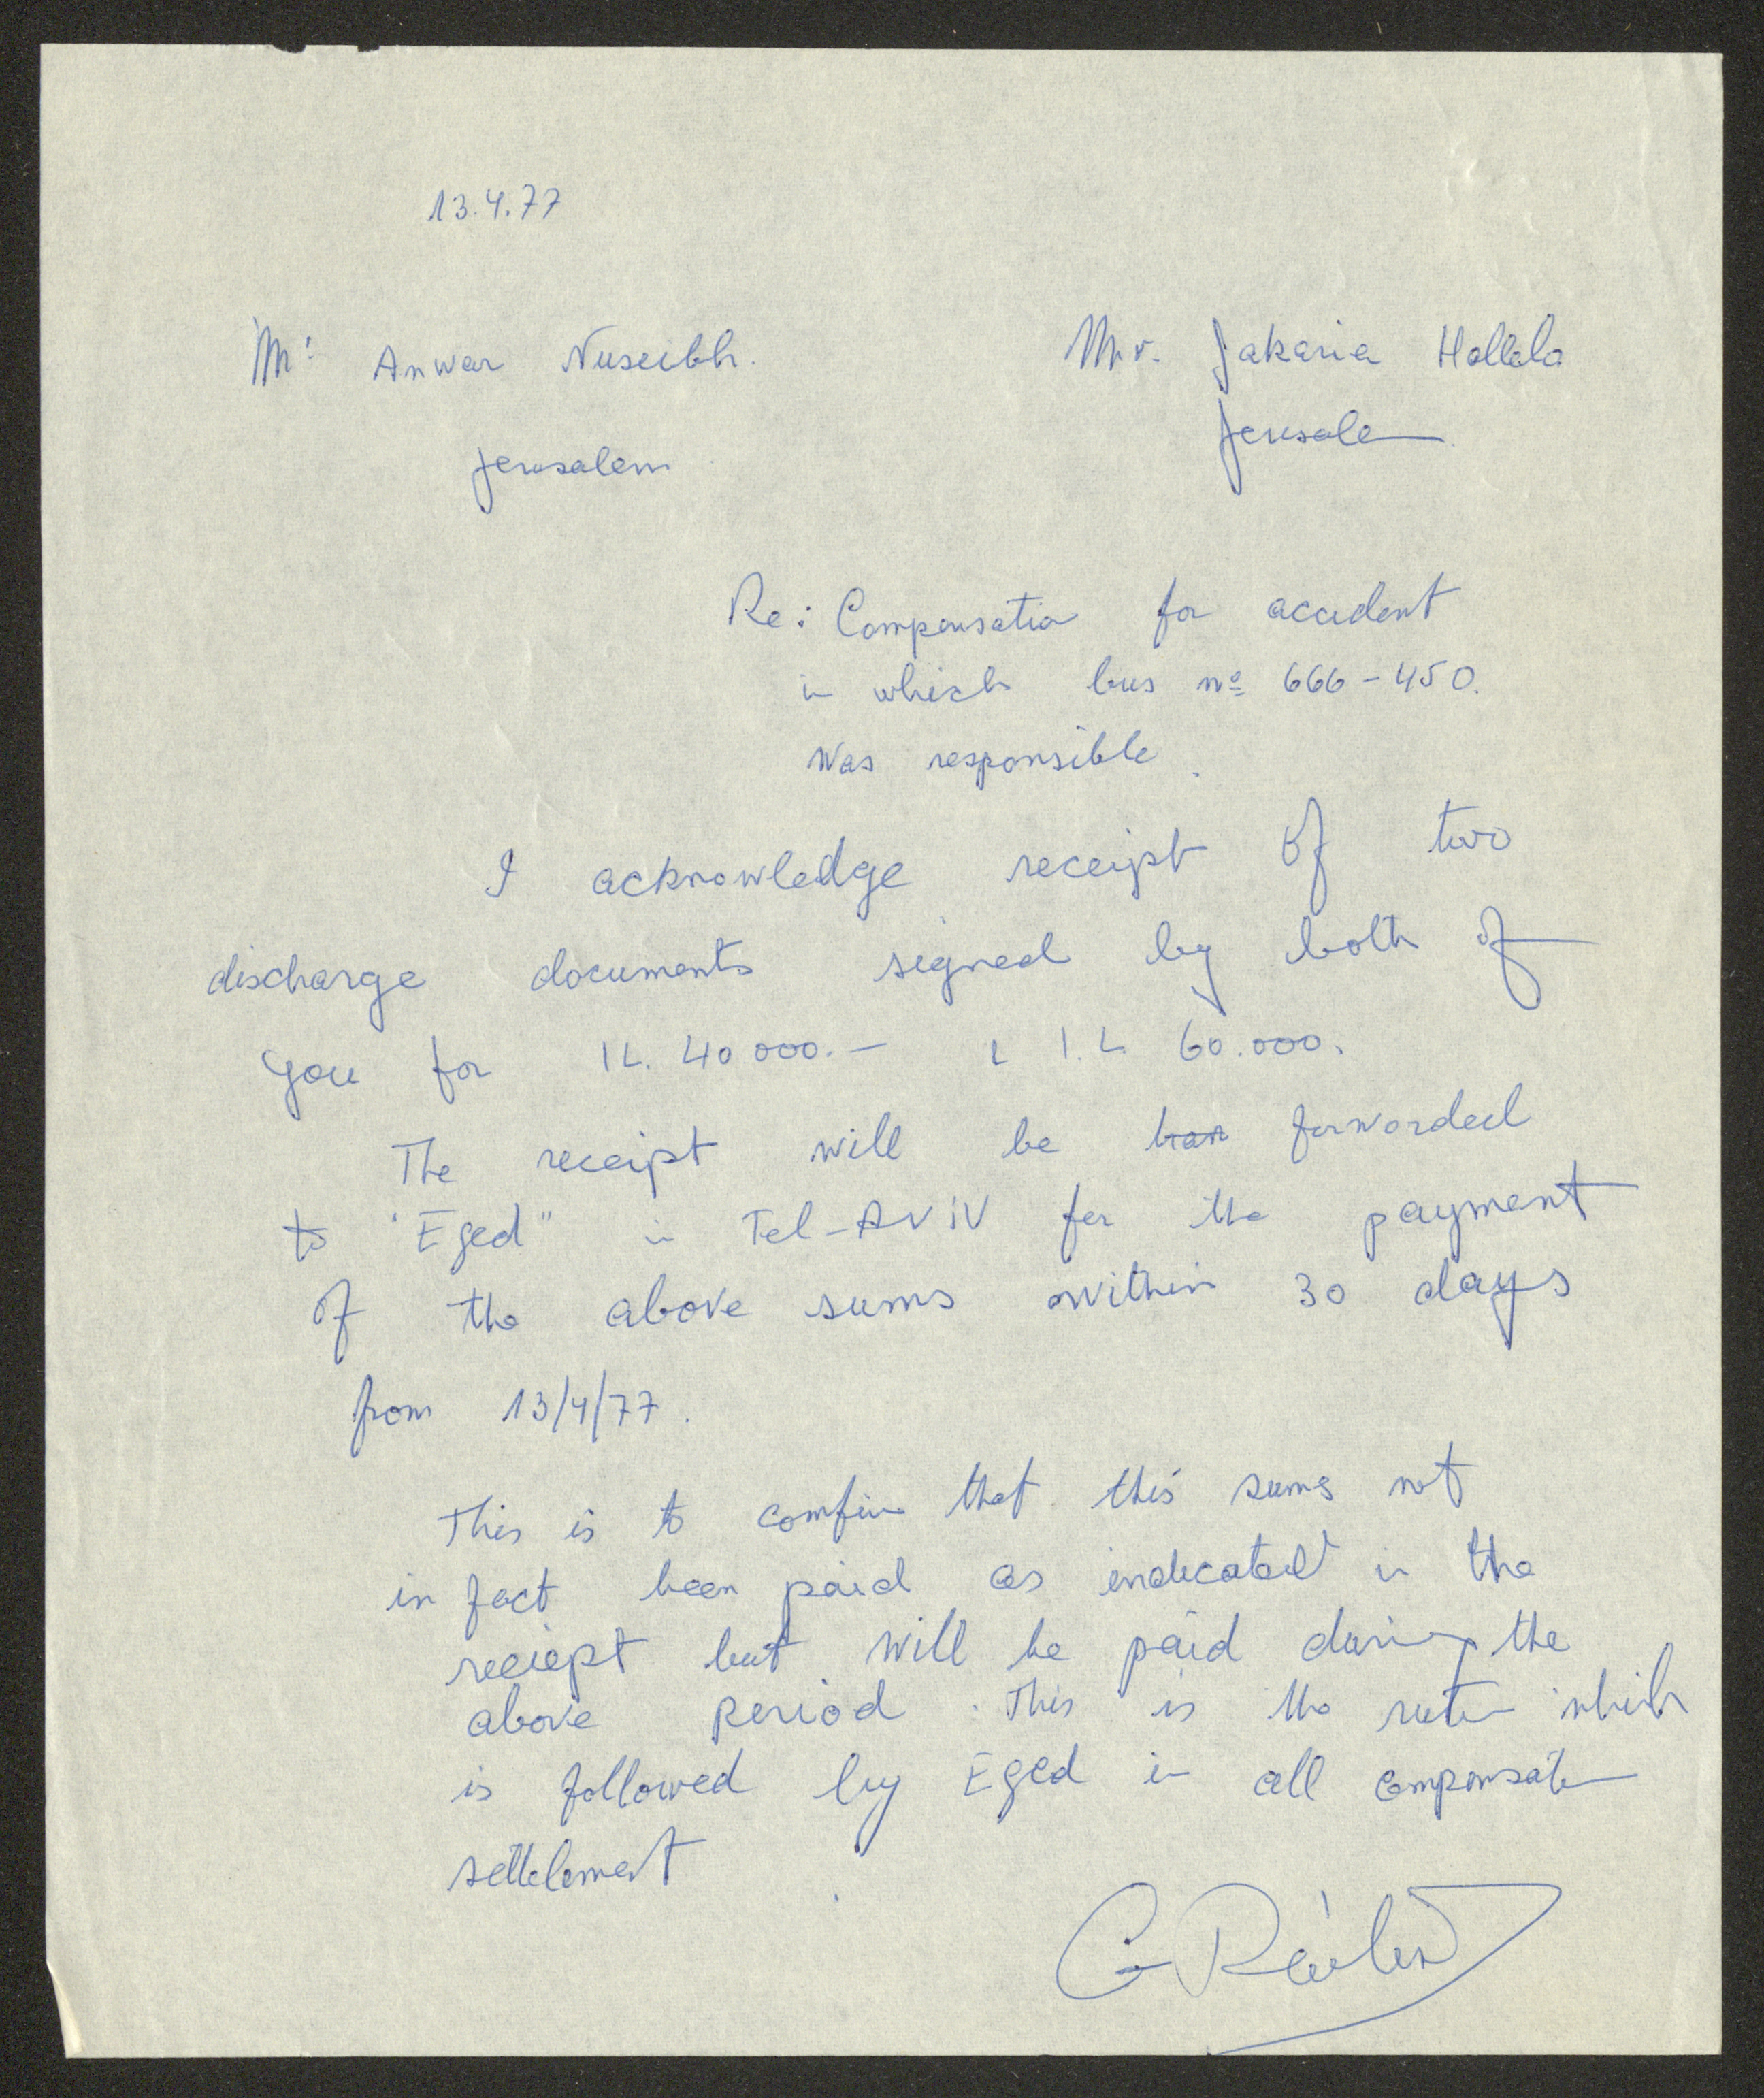 13.4.77
Mr Anwar Nuseibh.
Jerusalem
Mr. Jakaria Hallala
Jerusalem
Re: Compensation for accident
in which bus nº 666-450.
Was responsible.
I acknowledge receipt of two
discharge documents signed by both of
you for IL. 40 000.- & I.L. 60.000.
The receipt will be forwarded
to "Eged" in Tel-AViV for the payment
of the above sums within 30 days
from 13/4/77.
This is to comfirm that this sums not
in fact been paid as indicated in the
reciept but will be paid during the
above period. This is the which
is followed by Eged in all compensation
settlement.